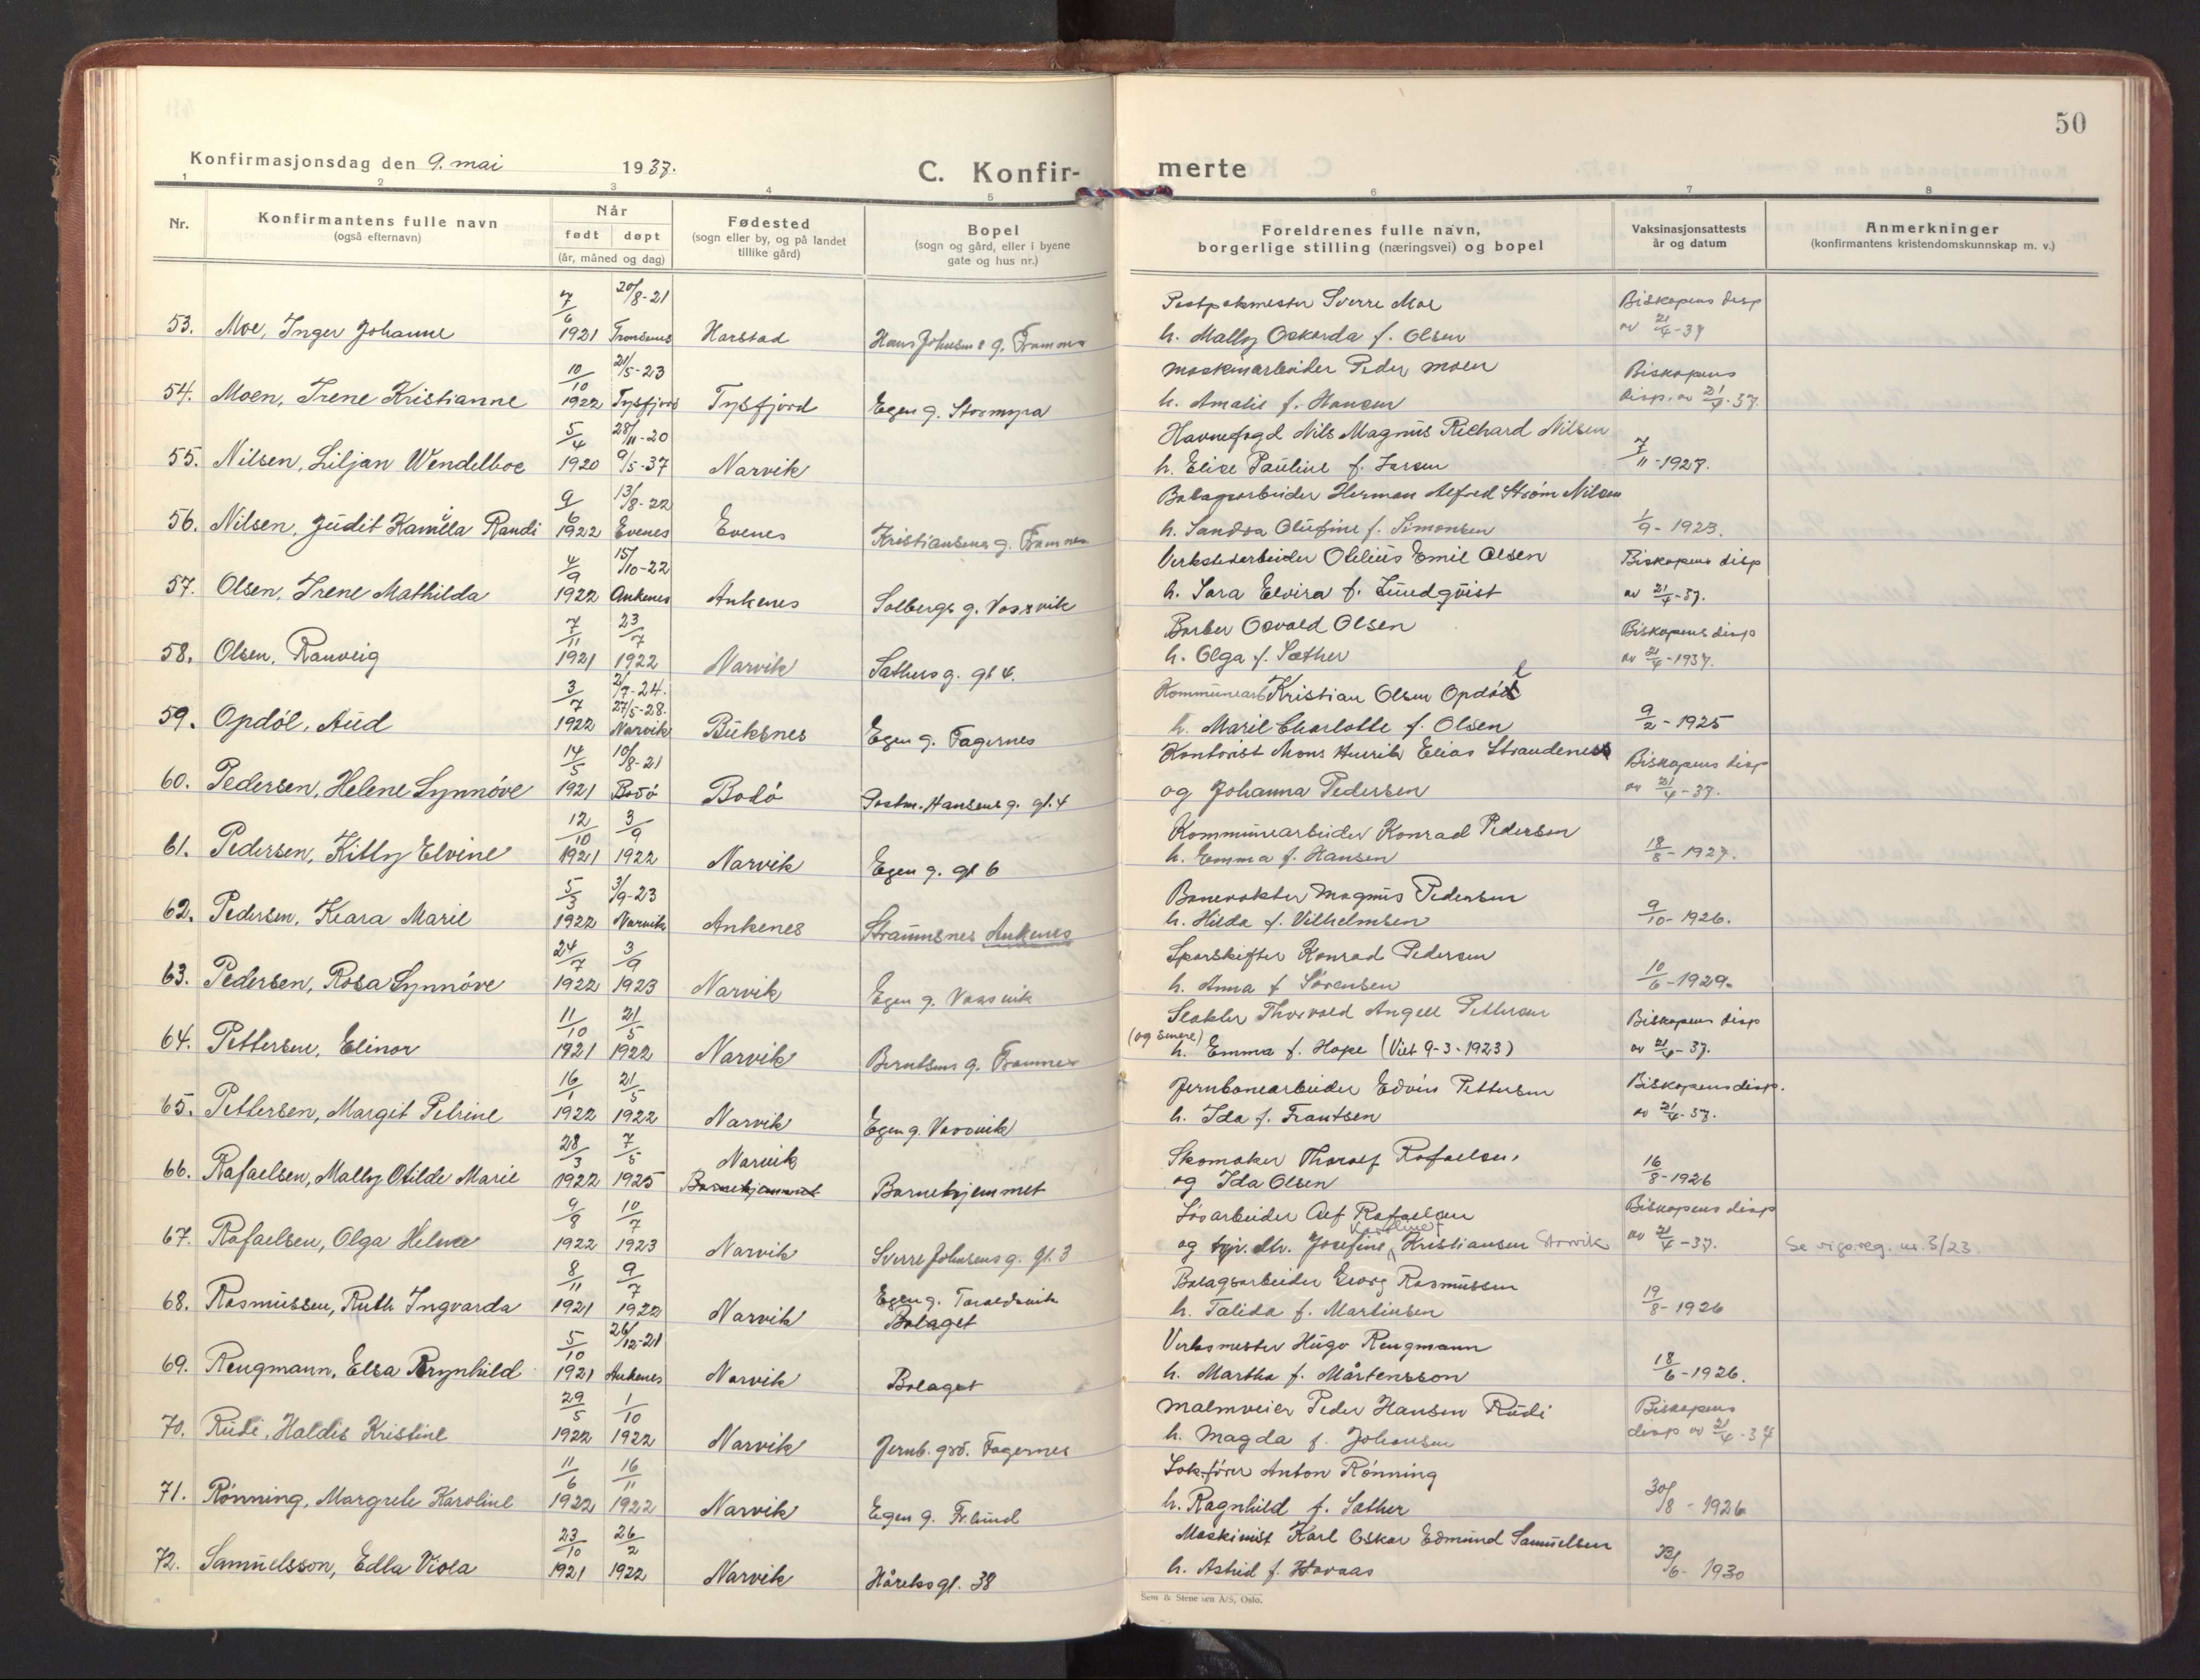 50
Konfirmasjonsdag den 9. mai 1937.
C. Konfirmerte
1 2 3 4 5 6 7 8
Nr.
Konfirmantens fulle navn
(også efternavn)
Når
født døpt
(år, måned og dag)
Fødested
(sogn eller by, og på landet
tillike gård)
Bopel
(sogn og gård, eller i byene
gate og hus nr.)
Foreldrenes fulle navn,
borgerlige stilling (næringsvei) og bopel
Vaksinasjonsattests
år og datum
Anmerkninger
(konfirmantens kristendomskunnskap m. v.)
7/6 20/8-21 Sverre Moe Biskopens disp
53. Moe, Inger Johanne 1921 Trondenes Harstad Hans Johnsens g. Framnes h. Mally f. Olsen av 21/4-37
10/10 21/5-23 Maskinarbeider Peder Moen Biskopens
54. Moen, Irene Kristianne 1922 Tysfjord Tysfjord Egen g. Stormyra h. Amalie f. Hansen disp. av 21/4-37.
5/4 28/11-20 Havnefogd Nils Magnus Richard Nilsen
55. Nilsen, Liljan Wendelboe 1920 9/5-37 Narvik h. Elise Pauline f. Larsen 7/11-1927.
9/6 13/8-22 Bolagsarbeider Herman Alfred Strøm Nilsen
56. Nilsen, Judit Kamilla Randi 1922 Evenes Evenes Kristiansens g. Framnes h. Sandra Olufine f. Simonsen 1/9-1923.
4/9 15/10-22 Verkstedarbeider Otelius Emil Olsen Biskopens disp
57. Olsen, Irene Mathilda 1922 Ankenes Ankenes Solbergs g. Vassvik h. Sara Elvira f. Lundqvist av 21/4-37.
7/11 23/7 Barber Osvald Olsen Biskopens disp
58. Olsen, Ranveig 1921 1922 Narvik Sæthers g. gt 4. h. Olga f. Sæther av 21/4-1937.
3/7 2/7-24. 27/5-28. Kommunearb Kristian Olsen Opdøl
59. Opdøl, Aud 1922 Narvik Buksnes Egen g. Fagernes h. Marie Charlotte f. Olsen 9/2-1925
14/5 10/8-21 Kontorist Mons Henrik Elias Strandeness Biskopens disp
60. Pedersen, Helene Synnøve 1921 Bodø Bodø Postm. Hansens g. gt. 4 og Johanna Pedersen av 21/4-37.
12/10 3/9 Kommunearbeider Konrad Pedersen
61. Pedersen, Kitty Elvine 1921 1922 Narvik Egen g. gt 6 h. Emma f. Hansen 18/8-1927.
5/3 3/9-23 Banevokter Magnus Pedersen
62. Pedersen, Klara Marie 1922 Narvik Ankenes Straumsnes Ankenes h. Hilda f. Vilhelmsen 9/10-1926.
24/7 3/9 Sporskifter Konrad Pedersen
63. Pedersen, Rosa Synnøve 1922 1923 Narvik Egen g. Vassvik h. Anna f Sørensen 10/6-1929.
11/10 21/5 Slakter Thorvald Angell Pettersen Biskopens disp
64. Pettersen, Elinor 1921 1922 Narvik Berntsens g. Framnes (og senere) h. Emma f. Hope (Viet 9-3-1923) av 21/4-37.
16/1 21/5 Jernbanearbeider Edvin Pettersen Biskopens disp.
65. Pettersen, Margit Petrine 1922 1922 Narvik Egen g. Vassvik h. Ida f. Frantsen av 21/4-37.
28/3 7/5 Narvik Skomaker Tharalf Rafaelsen,
66. Rafaelsen, Mally Otilde Marie 1922 1925 Barnehjemmet Barnehjemmet og Ida Olsen 16/8-1926
9/8 10/7 Løsarbeider Alf Rafaelsen Biskopens disp
67. Rafaelsen, Olga Helene 1922 1923 Narvik Sverre Johnsens g. gt. 3 og tjp. Josefine Karoline Kristiansen Storvik av 21/4-37. Se reg. nr. 3/23
8/11 9/7 Egen g. Taraldsvik Bolagsarbeider Georg Rasmussen
68. Rasmussen, Ruth Ingvarda 1921 1922 Narvik Bolaget h. Talida f. Martinsen 19/8-1926
5/10 26/12-21 Verksmester Hugo Rengmann
69. Rengmann, Elsa Brynhild 1921 Ankenes Narvik Bolaget h. Martha f. Mårtensson 18/6-1926.
29/5 1/10 Malmveier Peder Hansen Rudi Biskopens
70. Rudi, Haldis Kristine 1922 1922 Narvik Jernb. grd. Fagernes h. Magda f. Johansen disp av 21/4-37
11/6 16/11 Lokfører Anton Rønning
71. Rønning, Margrete Karoline 1922 1922 Narvik Egen g. Frlund h. Ragnhild f. Sæther 30/8-1926
23/10 26/2 Maskinist Karl Oskar Edmund Samuelsen
72. Samuelsson, Edla Viola 1921 1922 Narvik Håreksgt. 38 h. Astrid f. Hovaas 23/6-1930
Sem & Stenersen A/S, Oslo.